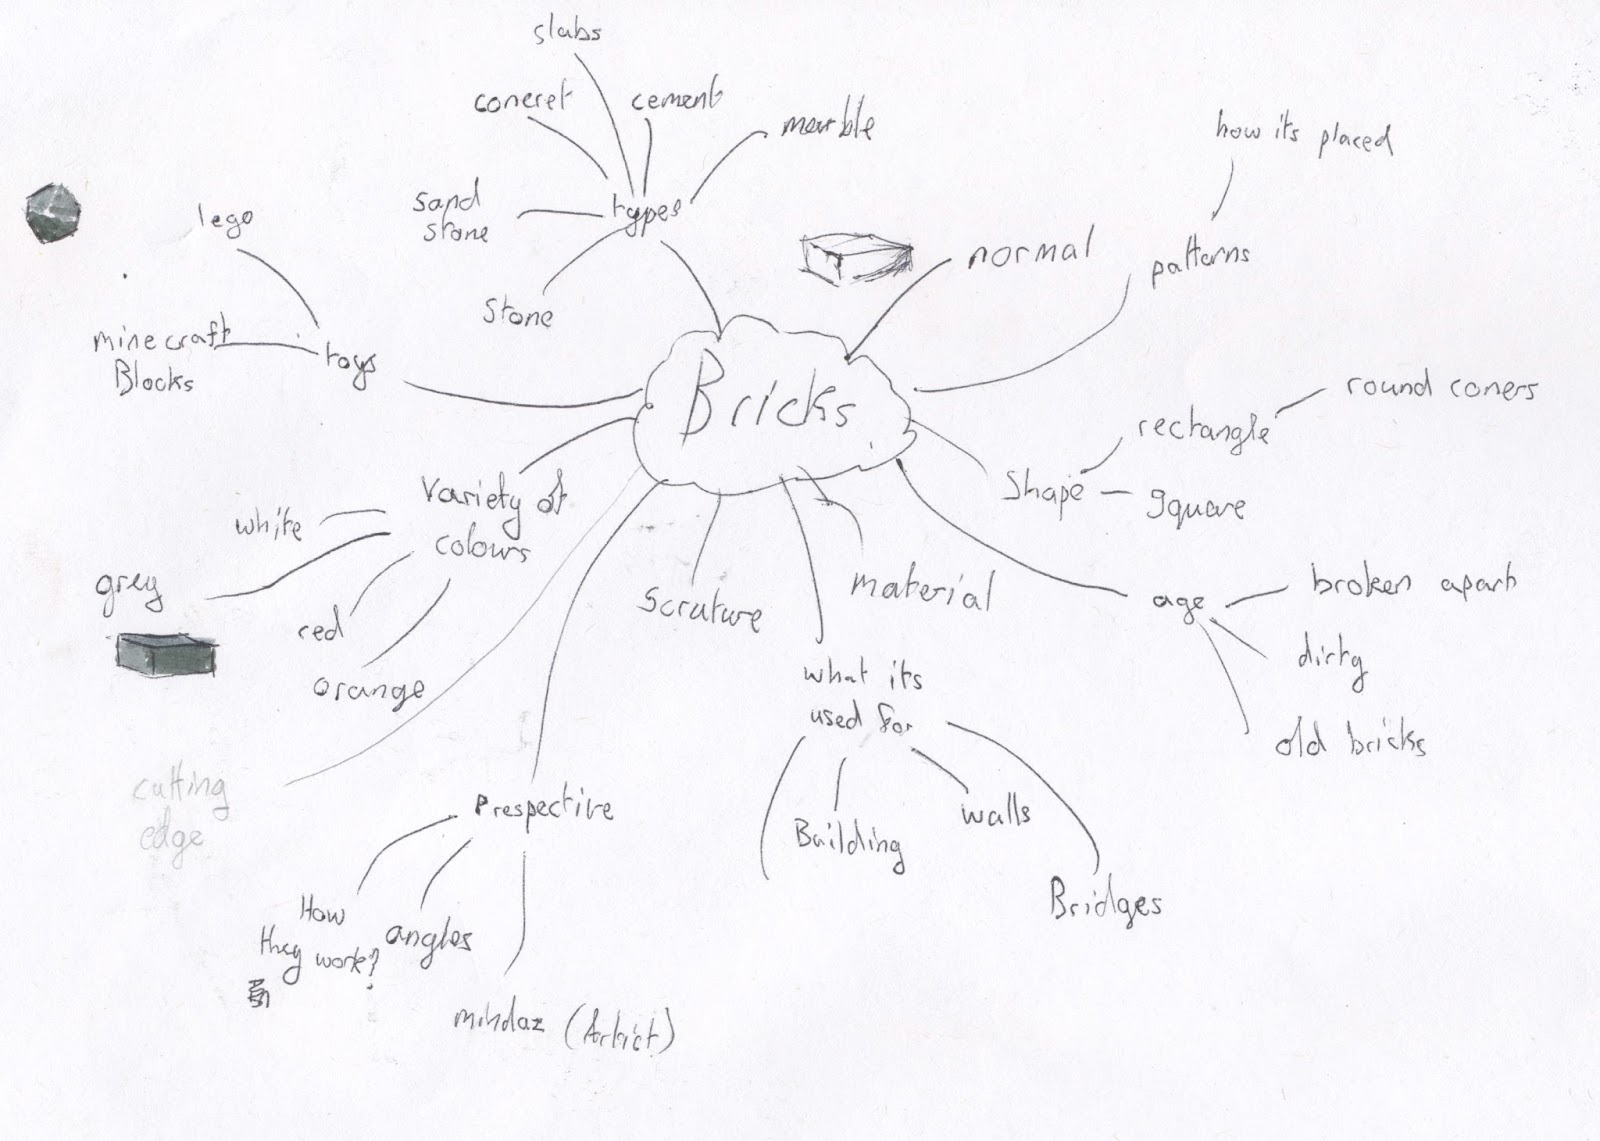 slabs
concret
cement
marble
how its placed
sand
stone
types
lego
normal
patterns
Stone
minecraft
Blocks
toys
Bricks
round coners
rectangle
Shape
square
Variety of
colours
white
grey
red
orange
Scruture
material
age
broken apart
dirty
old bricks
what its
used for
Building
walls
Bridges
cutting
edge
Prespective
How
they work?
angles
(Artict)